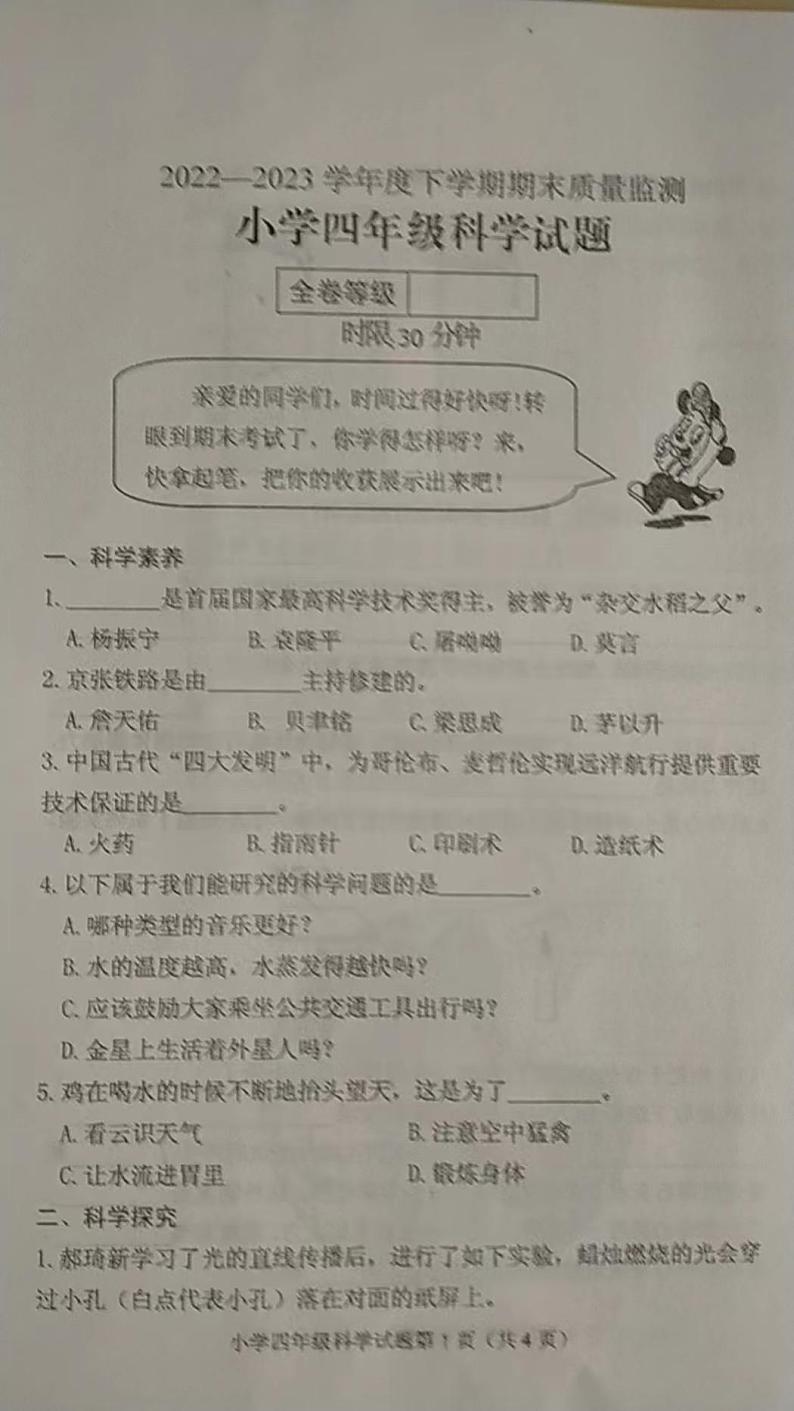 2022—2023 学年度下学期期末质量监测
小学四年级科学试题
全卷等级
时限 30 分钟
亲爱的同学们，时间过得好快呀！转
眼到期末考试了，你学得怎样呀？来，
快拿起笔，把你的收获展示出来吧！
一、科学素养
1.________是首届国家最高科学技术奖得主，被誉为“杂交水稻之父”。
A. 杨振宁 B. 袁隆平 C. 屠呦呦 D. 莫言
2. 京张铁路是由________主持修建的。
A. 詹天佑 B. 贝聿铭 C. 梁思成 D. 茅以升
3. 中国古代“四大发明”中，为哥伦布、麦哲伦实现远洋航行提供重要
技术保证的是________。
A. 火药 B. 指南针 C. 印刷术 D. 造纸术
4. 以下属于我们能研究的科学问题的是________。
A. 哪种类型的音乐更好？
B. 水的温度越高，水蒸发得越快吗？
C. 应该鼓励大家乘坐公共交通工具出行吗？
D. 金星上生活着外星人吗？
5. 鸡在喝水的时候不断地抬头望天，这是为了________。
A. 看云识天气 B. 注意空中猛禽
C. 让水流进胃里 D. 锻炼身体
二、科学探究
1. 郝琦新学习了光的直线传播后，进行了如下实验，蜡烛燃烧的光会穿
过小孔（白点代表小孔）落在对面的纸屏上。
小学四年级科学试题第 1 页（共 4 页）